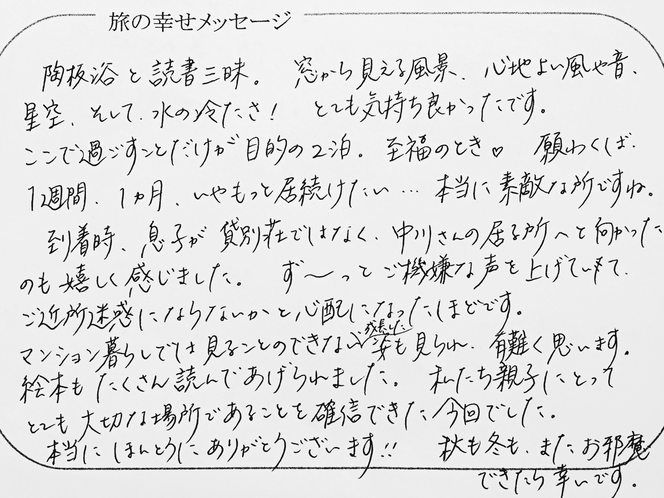 旅の幸せメッセージ
陶板浴と読書三昧。 窓から見える風景、心地よい風や音、
星空、そして、水の冷たさ! とても気持ち良かったです。
ここで過ごすことだけが目的の2泊。至福のとき♡ 願わくば、
1週間、1ヵ月、いやもっと居続けたい… 本当に素敵な所ですね。
到着時、息子が貸別荘ではなく、中川さんの居る所へと向かった
のも嬉しく感じました。 ず〜っとご機嫌な声を上げていて、
ご近所迷惑にならないかと心配になったほどです。
成長した
マンション暮らしでは見ることのできない姿も見られ、有難く思います。
絵本もたくさん読んであげられました。 私たち親子にとって
とても大切な場所であることを確信できた今回でした。
本当にほんとうにありがとうございます!! 秋も冬も、またお邪魔
できたら幸いです。